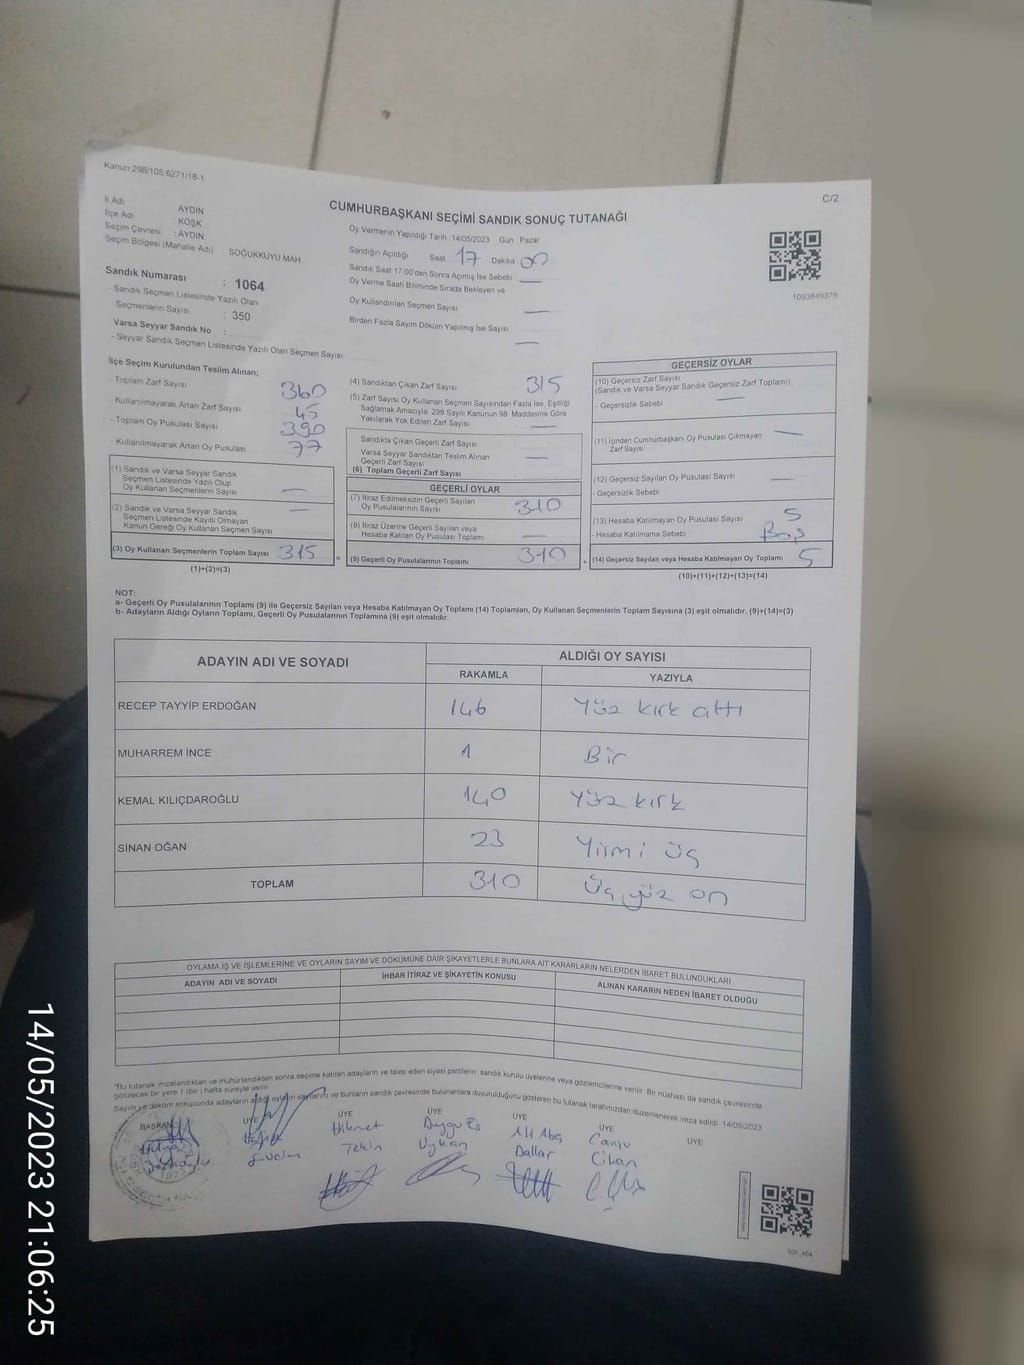 Kanun 298/105,6271/18-1
C/2
CUMHURBAŞKANI SEÇİMİ SANDIK SONUÇ TUTANAĞI
İl Adı AYDIN
İlçe Adı KÖŞK
Seçim Çevresi : AYDIN
Seçim Bölgesi (Mahalle Adı) SOĞUKKUYU MAH
Sandık Numarası : 1064
- Sandık Seçmen Listesinde Yazılı Olan
Seçmenlerin Sayısı : 350
Varsa Seyyar Sandık No :
- Seyyar Sandık Seçmen Listesinde Yazılı Olan Seçmen Sayısı
Oy Vermenin Yapıldığı Tarih 14/05/2023 Gün Pazar
Sandığın Açıldığı Saat 17 Dakika 00
Sandık Saat 17.00'den Sonra Açımış İse Sebebi
Oy Verme Saati Bitiminde Sırada Bekleyen ve
Oy Kullandırılan Seçmen Sayısı
Birden Fazla Sayım Döküm Yapılmış İse Sayısı
1093849378
İlçe Seçim Kurulundan Teslim Alınan;
- Toplam Zarf Sayısı 360
- Kullanılmayarak Artan Zarf Sayısı 45
- Toplam Oy Pusulası Sayısı 390
- Kullanılmayarak Artan Oy Pusulası 77
(1) Sandık ve Varsa Seyyar Sandık
Seçmen Listesinde Yazılı Olup
Oy Kullanan Seçmenlerin Sayısı
(2) Sandık ve Varsa Seyyar Sandık
Seçmen Listesinde Kayıtlı Olmayan
Kanun Gereği Oy Kullanan Seçmen Sayısı
(3) Oy Kullanan Seçmenlerin Toplam Sayısı 315
(1)+(2)=(3)
(4) Sandıktan Çıkan Zarf Sayısı 315
(5) Zarf Sayısı Oy Kullanan Seçmen Sayısından Fazla İse, Eşitliği
Sağlamak Amacıyla, 298 Sayılı Kanunun 98. Maddesine Göre
Yakılarak Yok Edilen Zarf Sayısı
Sandıkta Çıkan Geçerli Zarf Sayısı
Varsa Seyyar Sandıktan Teslim Alınan
Geçerli Zarf Sayısı
(6) Toplam Geçerli Zarf Sayısı
GEÇERLİ OYLAR
(7) İtiraz Edilmeksizin Geçerli Sayılan
Oy Pusulalarının Sayısı 310
(8) İtiraz Üzerine Geçerli Sayılan veya
Hesaba Katılan Oy Pusulası Toplamı
(9) Geçerli Oy Pusulalarının Toplamı 310
GEÇERSİZ OYLAR
(10) Geçersiz Zarf Sayısı
(Sandık ve Varsa Seyyar Sandık Geçersiz Zarf Toplamı)
- Geçersizlik Sebebi
(11) İçinden Cumhurbaşkanı Oy Pusulası Çıkmayan
Zarf Sayısı
(12) Geçersiz Sayılan Oy Pusulası Sayısı
- Geçersizlik Sebebi
(13) Hesaba Katılmayan Oy Pusulası Sayısı 5
- Hesaba Katılmama Sebebi Boş
(14) Geçersiz Sayılan veya Hesaba Katılmayan Oy Toplamı 5
(10)+(11)+(12)+(13)=(14)
NOT:
a- Geçerli Oy Pusulalarının Toplamı (9) ile Geçersiz Sayılan veya Hesaba Katılmayan Oy Toplamı (14) Toplamları, Oy Kullanan Seçmenlerin Toplam Sayısına (3) eşit olmalıdır. (9)+(14)=(3)
b- Adayların Aldığı Oyların Toplamı, Geçerli Oy Pusulalarının Toplamına (9) eşit olmalıdır.
ADAYIN ADI VE SOYADI ALDIĞI OY SAYISI
RAKAMLA YAZIYLA
RECEP TAYYİP ERDOĞAN 146 Yüz kırk altı
MUHARREM İNCE 1 Bir
KEMAL KILIÇDAROĞLU 140 Yüz kırk
SİNAN OĞAN 23 Yirmi üç
TOPLAM 310 Üç yüz on
OYLAMA İŞ VE İŞLEMLERİNE VE OYLARIN SAYIM VE DÖKÜMÜNE DAİR ŞİKAYETLERLE BUNLARA AİT KARARLARIN NELERDEN İBARET BULUNDUKLARI
ADAYIN ADI VE SOYADI İHBAR İTİRAZ VE ŞİKAYETİN KONUSU ALINAN KARARIN NEDEN İBARET OLDUĞU
"Bu tutanak imzalandıktan ve mühürlendikten sonra seçime katılan adayların ve talep eden siyasi partilerin sandık kurulu üyelerine veya gözlemcilerine verilir. Bir nüshası da sandık çevresinde
görülecek bir yere 1 (bir) hafta süreyle asılır.
Sayım ve döküm sonucunda adayların aldığı oyların sayılarını ve bunların sandık çevresinde bulunanlara duyurulduğunu gösteren bu tutanak tarafımızdan düzenlenerek imza edildi. 14/05/2023
BAŞKAN ÜYE ÜYE ÜYE ÜYE ÜYE ÜYE
Hikmet Duygu Ali Aba Cansu
Tekin Uykan Dallar Cihan
14/05/2023 21:06:25